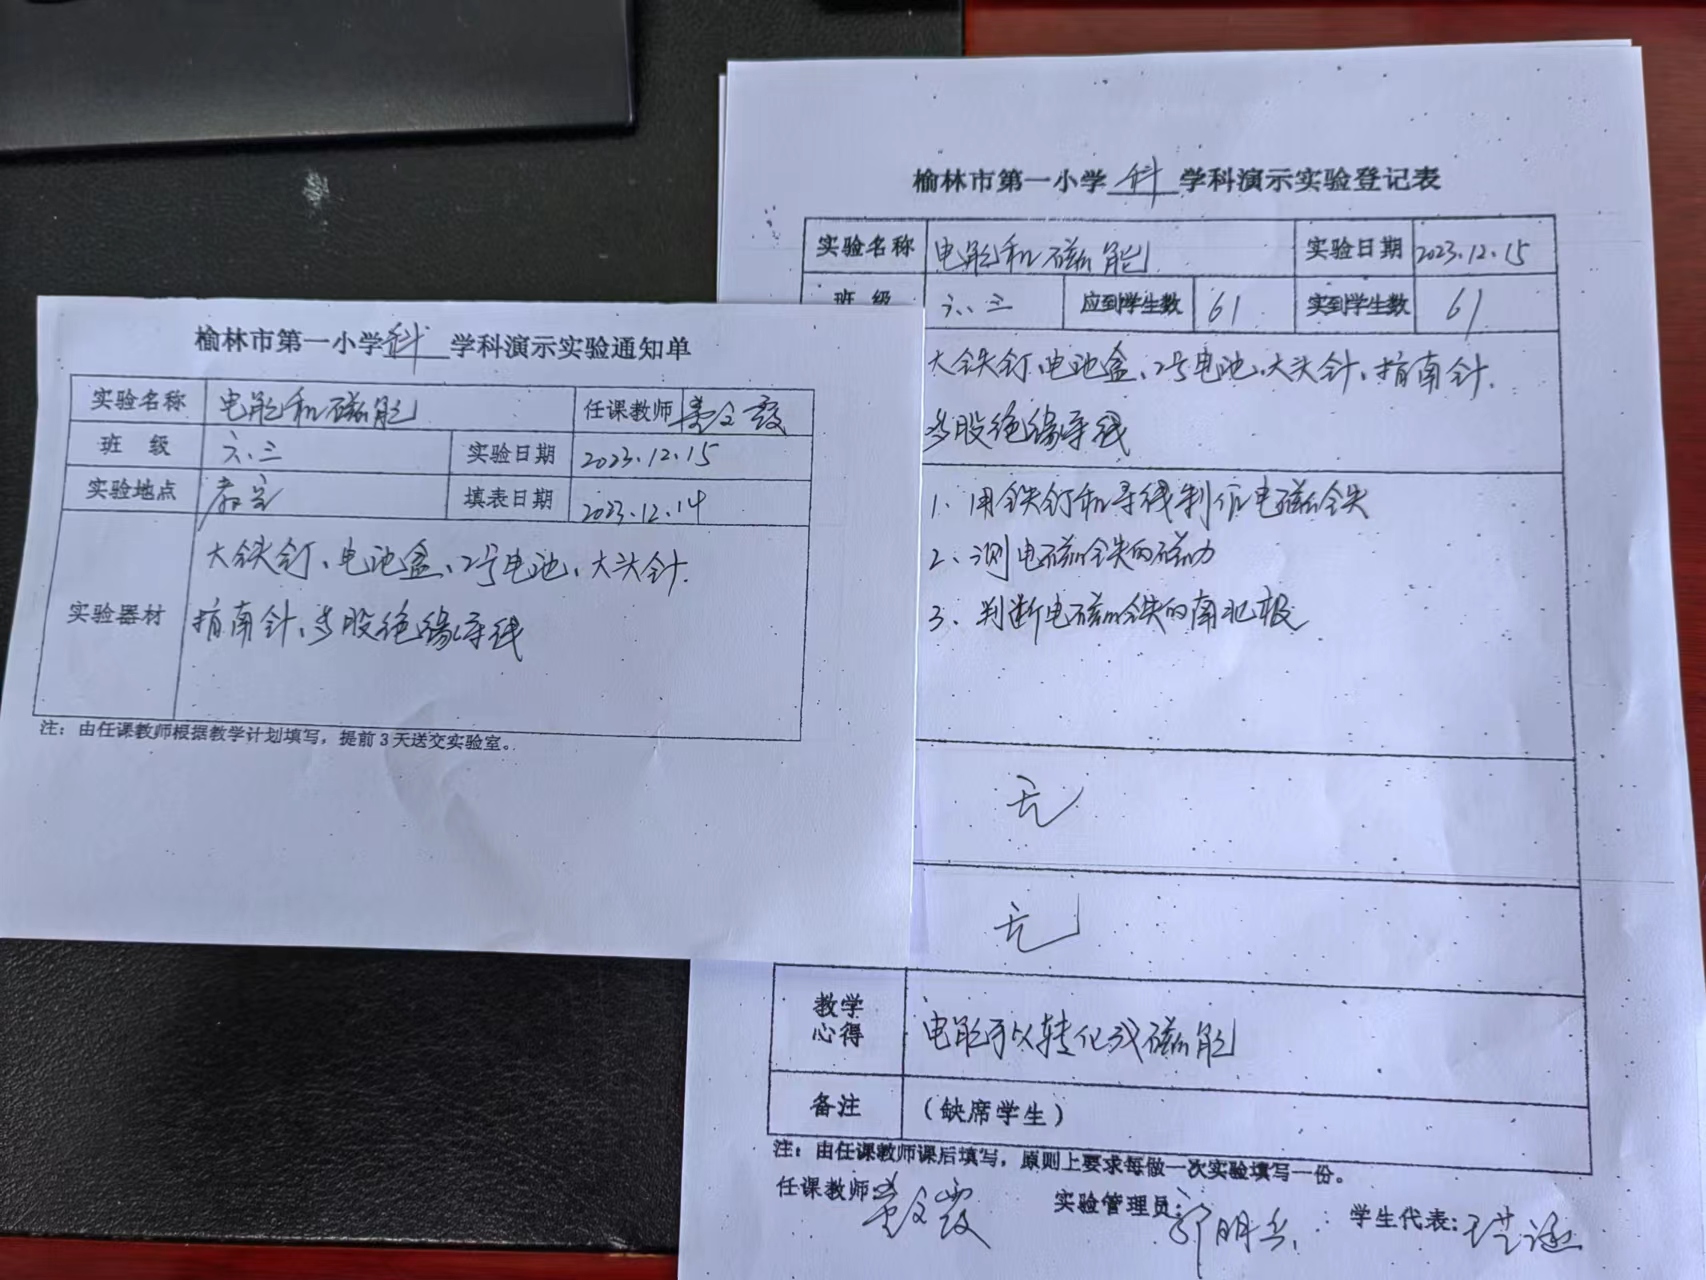 榆林市第一小学科学科演示实验通知单
实验名称 电能和磁能 任课教师
班 级 六.三 实验日期 2023.12.15
实验地点 教室 填表日期 2023.12.14
实验器材
大铁钉、电池盒、2号电池、大头针.
指南针、多股绝缘导线
注：由任课教师根据教学计划填写，提前3天送交实验室。
榆林市第一小学科学科演示实验登记表
实验名称 电能和磁能 实验日期 2023.12.15
班 级 六.三 应到学生数 61 实到学生数 61
大铁钉、电池盒、2号电池、大头针、指南针.
多股绝缘导线
1、用铁钉和导线制作电磁铁
2、测电磁铁的磁力
3、判断电磁铁的南北极
无
无
教学
心得
电能可以转化成磁能
备注 （缺席学生）
注：由任课教师课后填写，原则上要求每做一次实验填写一份。
任课教师 实验管理员： 学生代表: